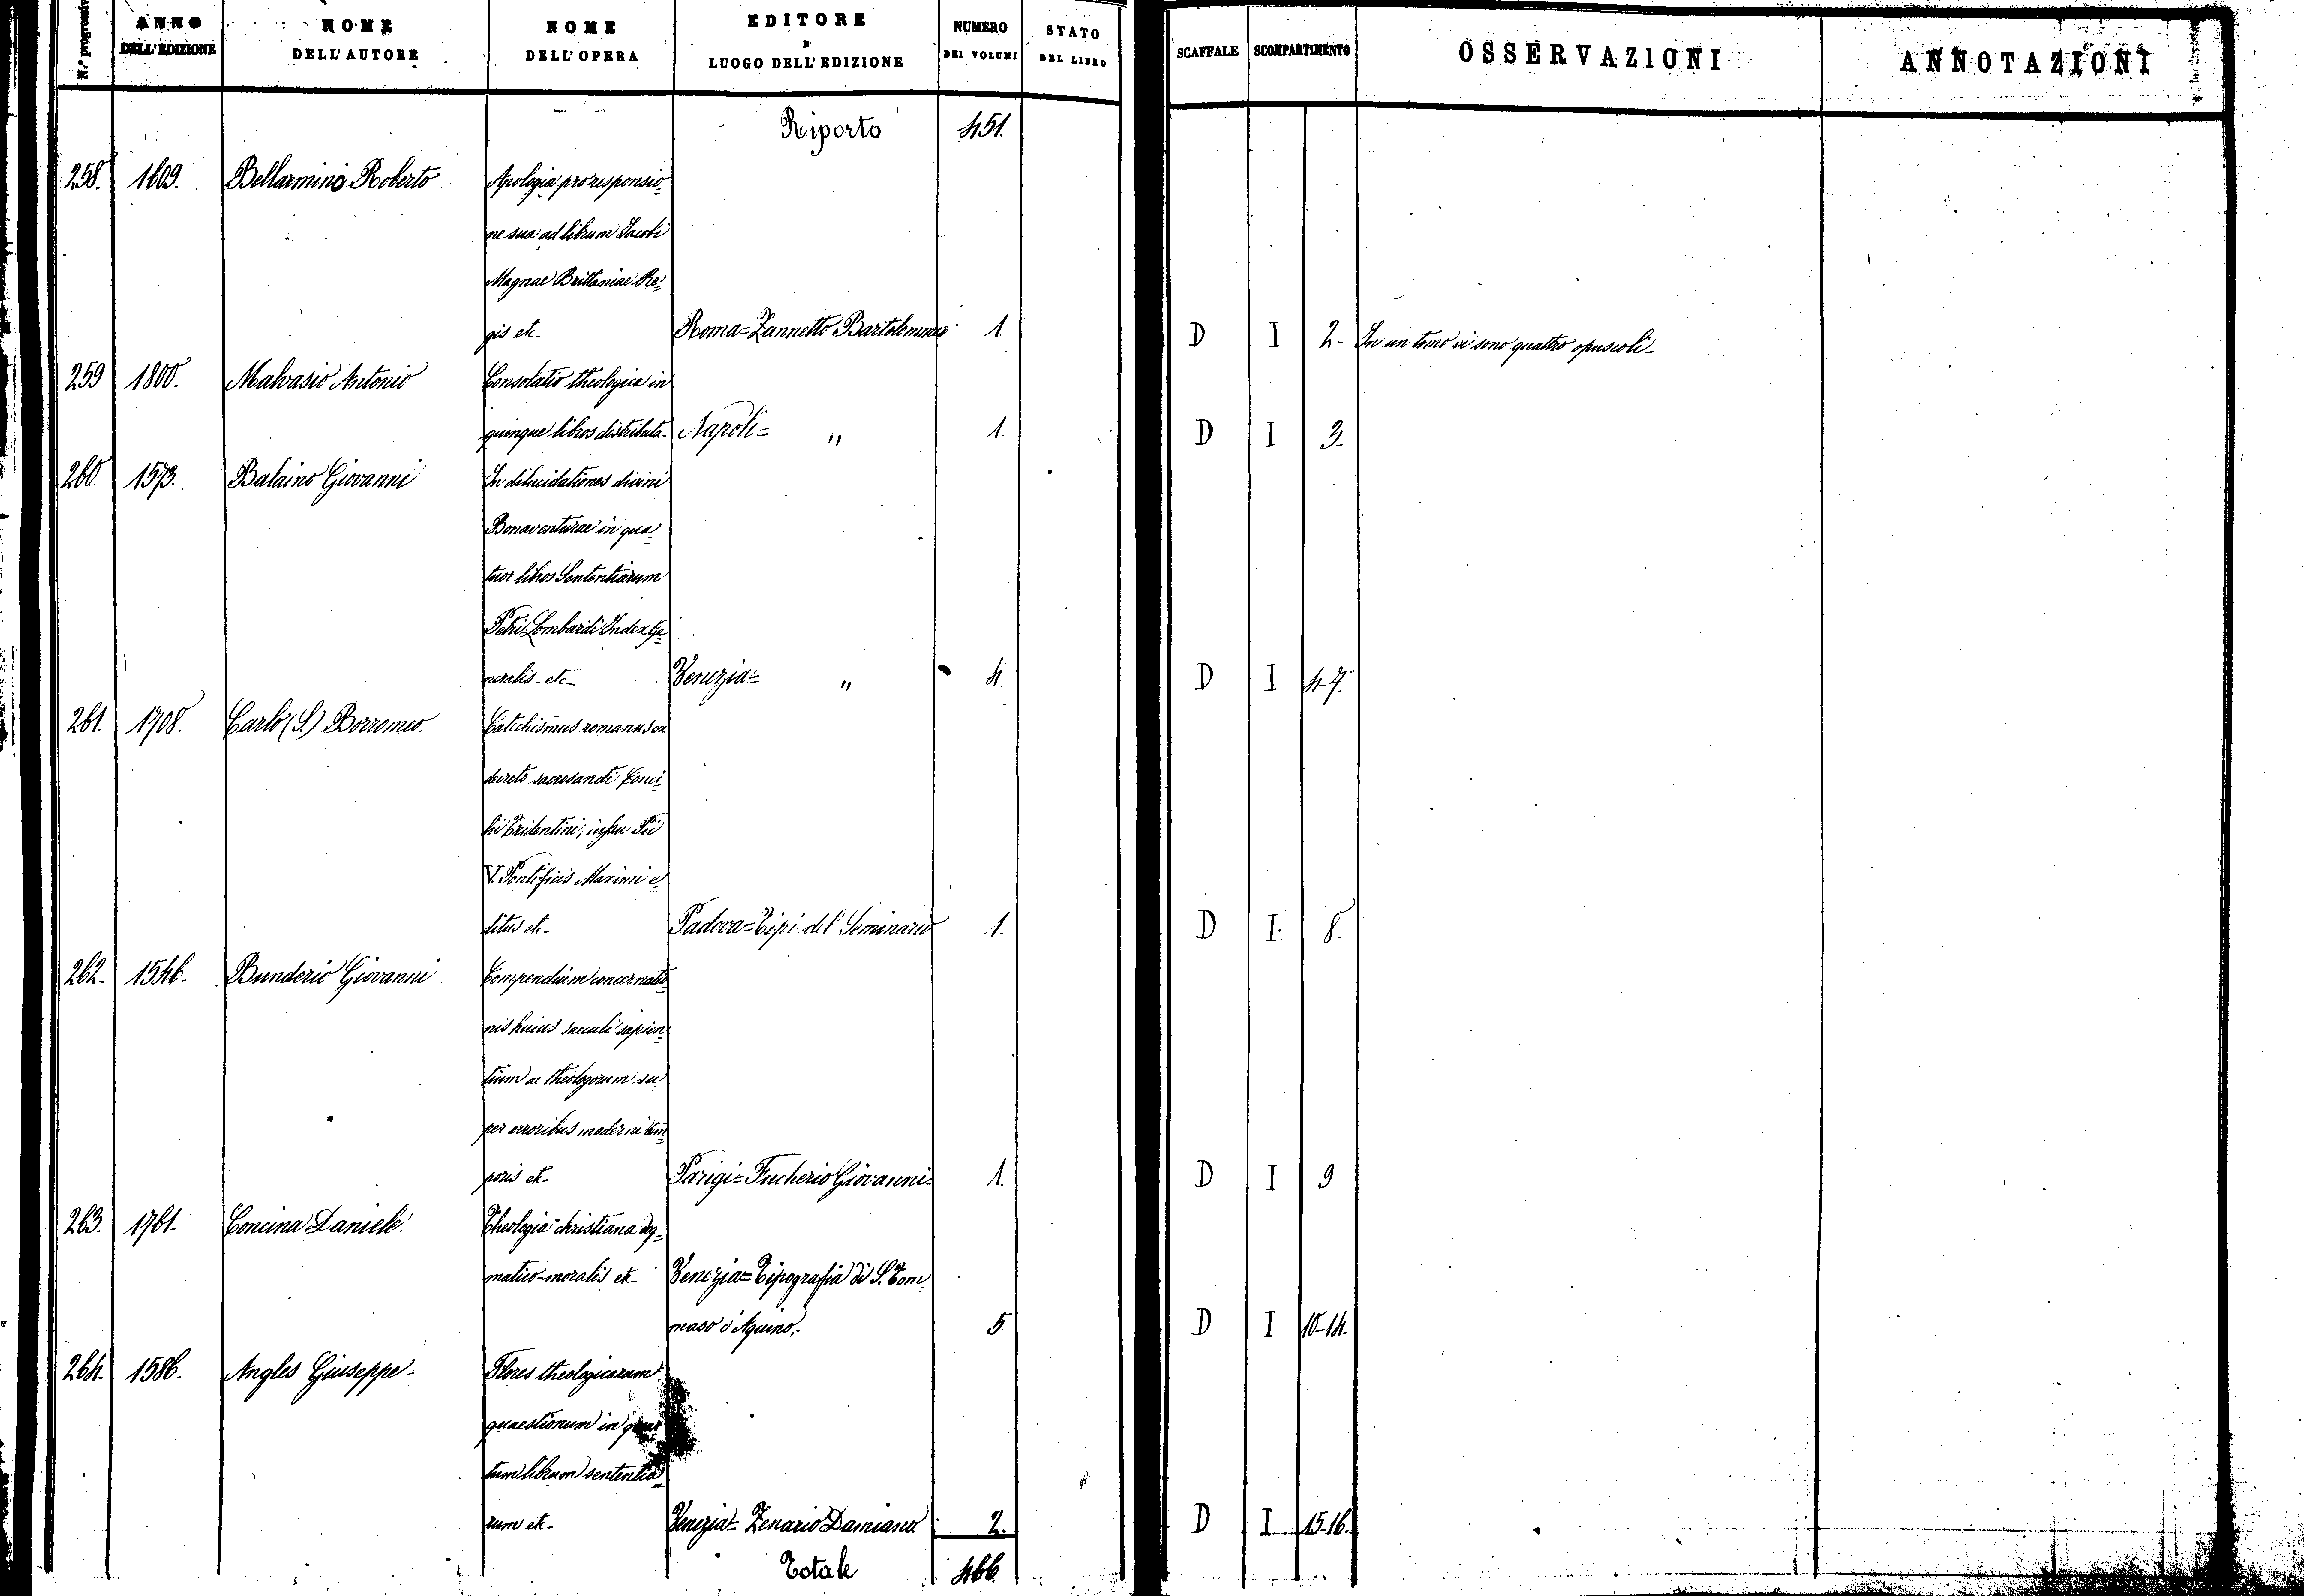 N.° progressivo ANNO DELL'EDIZIONE NOME DELL'AUTORE NOME DELL'OPERA EDITORE E LUOGO DELL'EDIZIONE NUMERO DEI VOLUMI STATO DEL LIBRO SCAFFALE SCOMPARTIMENTO OSSERVAZIONI ANNOTAZIONI
Riporto 451.
258. 1609. Bellarmino Roberto Apologia pro responsio=
ne sua ad librum Jacobi
Magnae Brittaniae Re=
gis etc- Roma=Zannetto Bartolomeo 1. D I 2- In un tomo vi sono quattro opuscoli-
259 1800. Malvasio Antonio Consolatio theologica in
quinque libros distributa- Napoli= " 1. D I 3.
260. 1573. Balaino Giovanni In dilucidationes divini
Bonaventurae in qua=
tuor libros Sententiarum
Petri Lombardi Index Ge=
neralis-etc- Venezia= " 4. D I 4-7.
261. 1708. Carlo (S.) Borromeo. Catechismus romanus ex
decreto sacrosancti Conci=
lii Tridentini, iussu Pii
V. Pontificis Maximi e=
ditus etc- Padova=Tipi del Seminario 1. D I. 8.
262. 1546. Bunderio Giovanni Compendium concernatio=
nis huius saeculi sapien=
tium ac theologorum su=
per erroribus moderni tem=
poris etc- Parigi=Fucherio Giovanni- 1. D I 9
263. 1761. Concina Daniele. Theologia christiana dog=
matico-moralis etc- Venezia=Tipografia di S. Tom=
maso d'Aquino,- 5. D I 10-14.
264. 1586. Angles Giuseppe- Flores theologicarum
quaestionum in quar=
tum librum sententia=
rum etc- Venezia= Zenario Damiano 2. D I 15-16.
Totale 466.